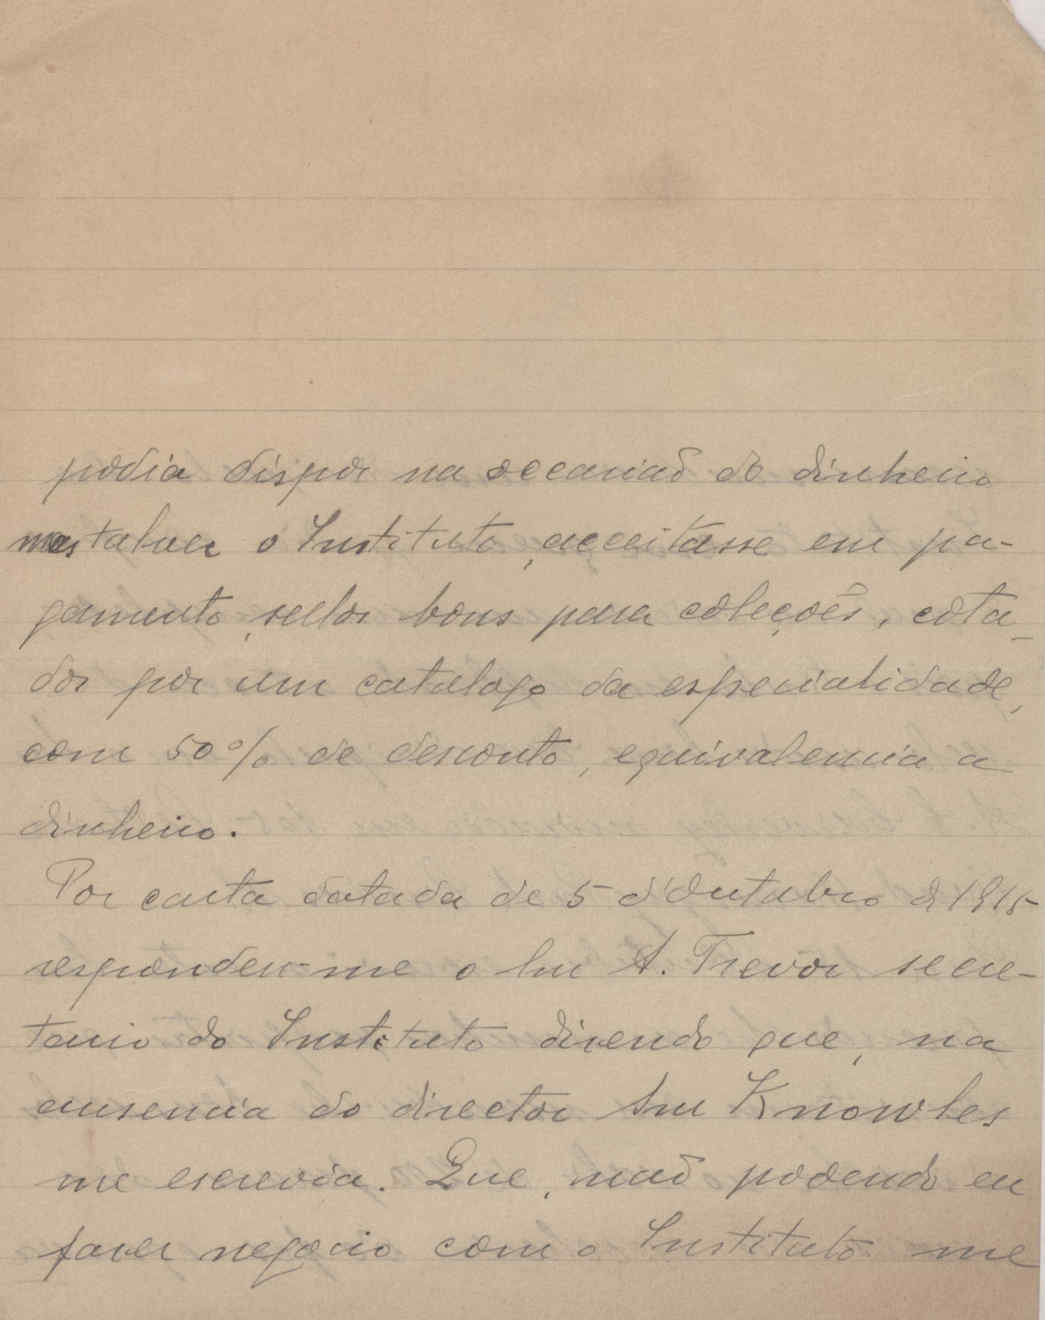 podia dispor na occasiaõ de dinheiro
mas talvez o Instituto, acceitasse em pa-
gamento, sellos bons para coleçoẽs, cota-
dos por um catalogo da especialidade,
com 50% de desconto, equivalencia a
dinheiro.
Por carta datada de 5 d'Outubro de 1915
respondeu-me o Snr A. Trevor secre-
tario do Instituto dizendo que, na
ausencia do director Snr Knowles
me escrevia. Que, naõ podendo eu
fazer negocio com o Instituto me